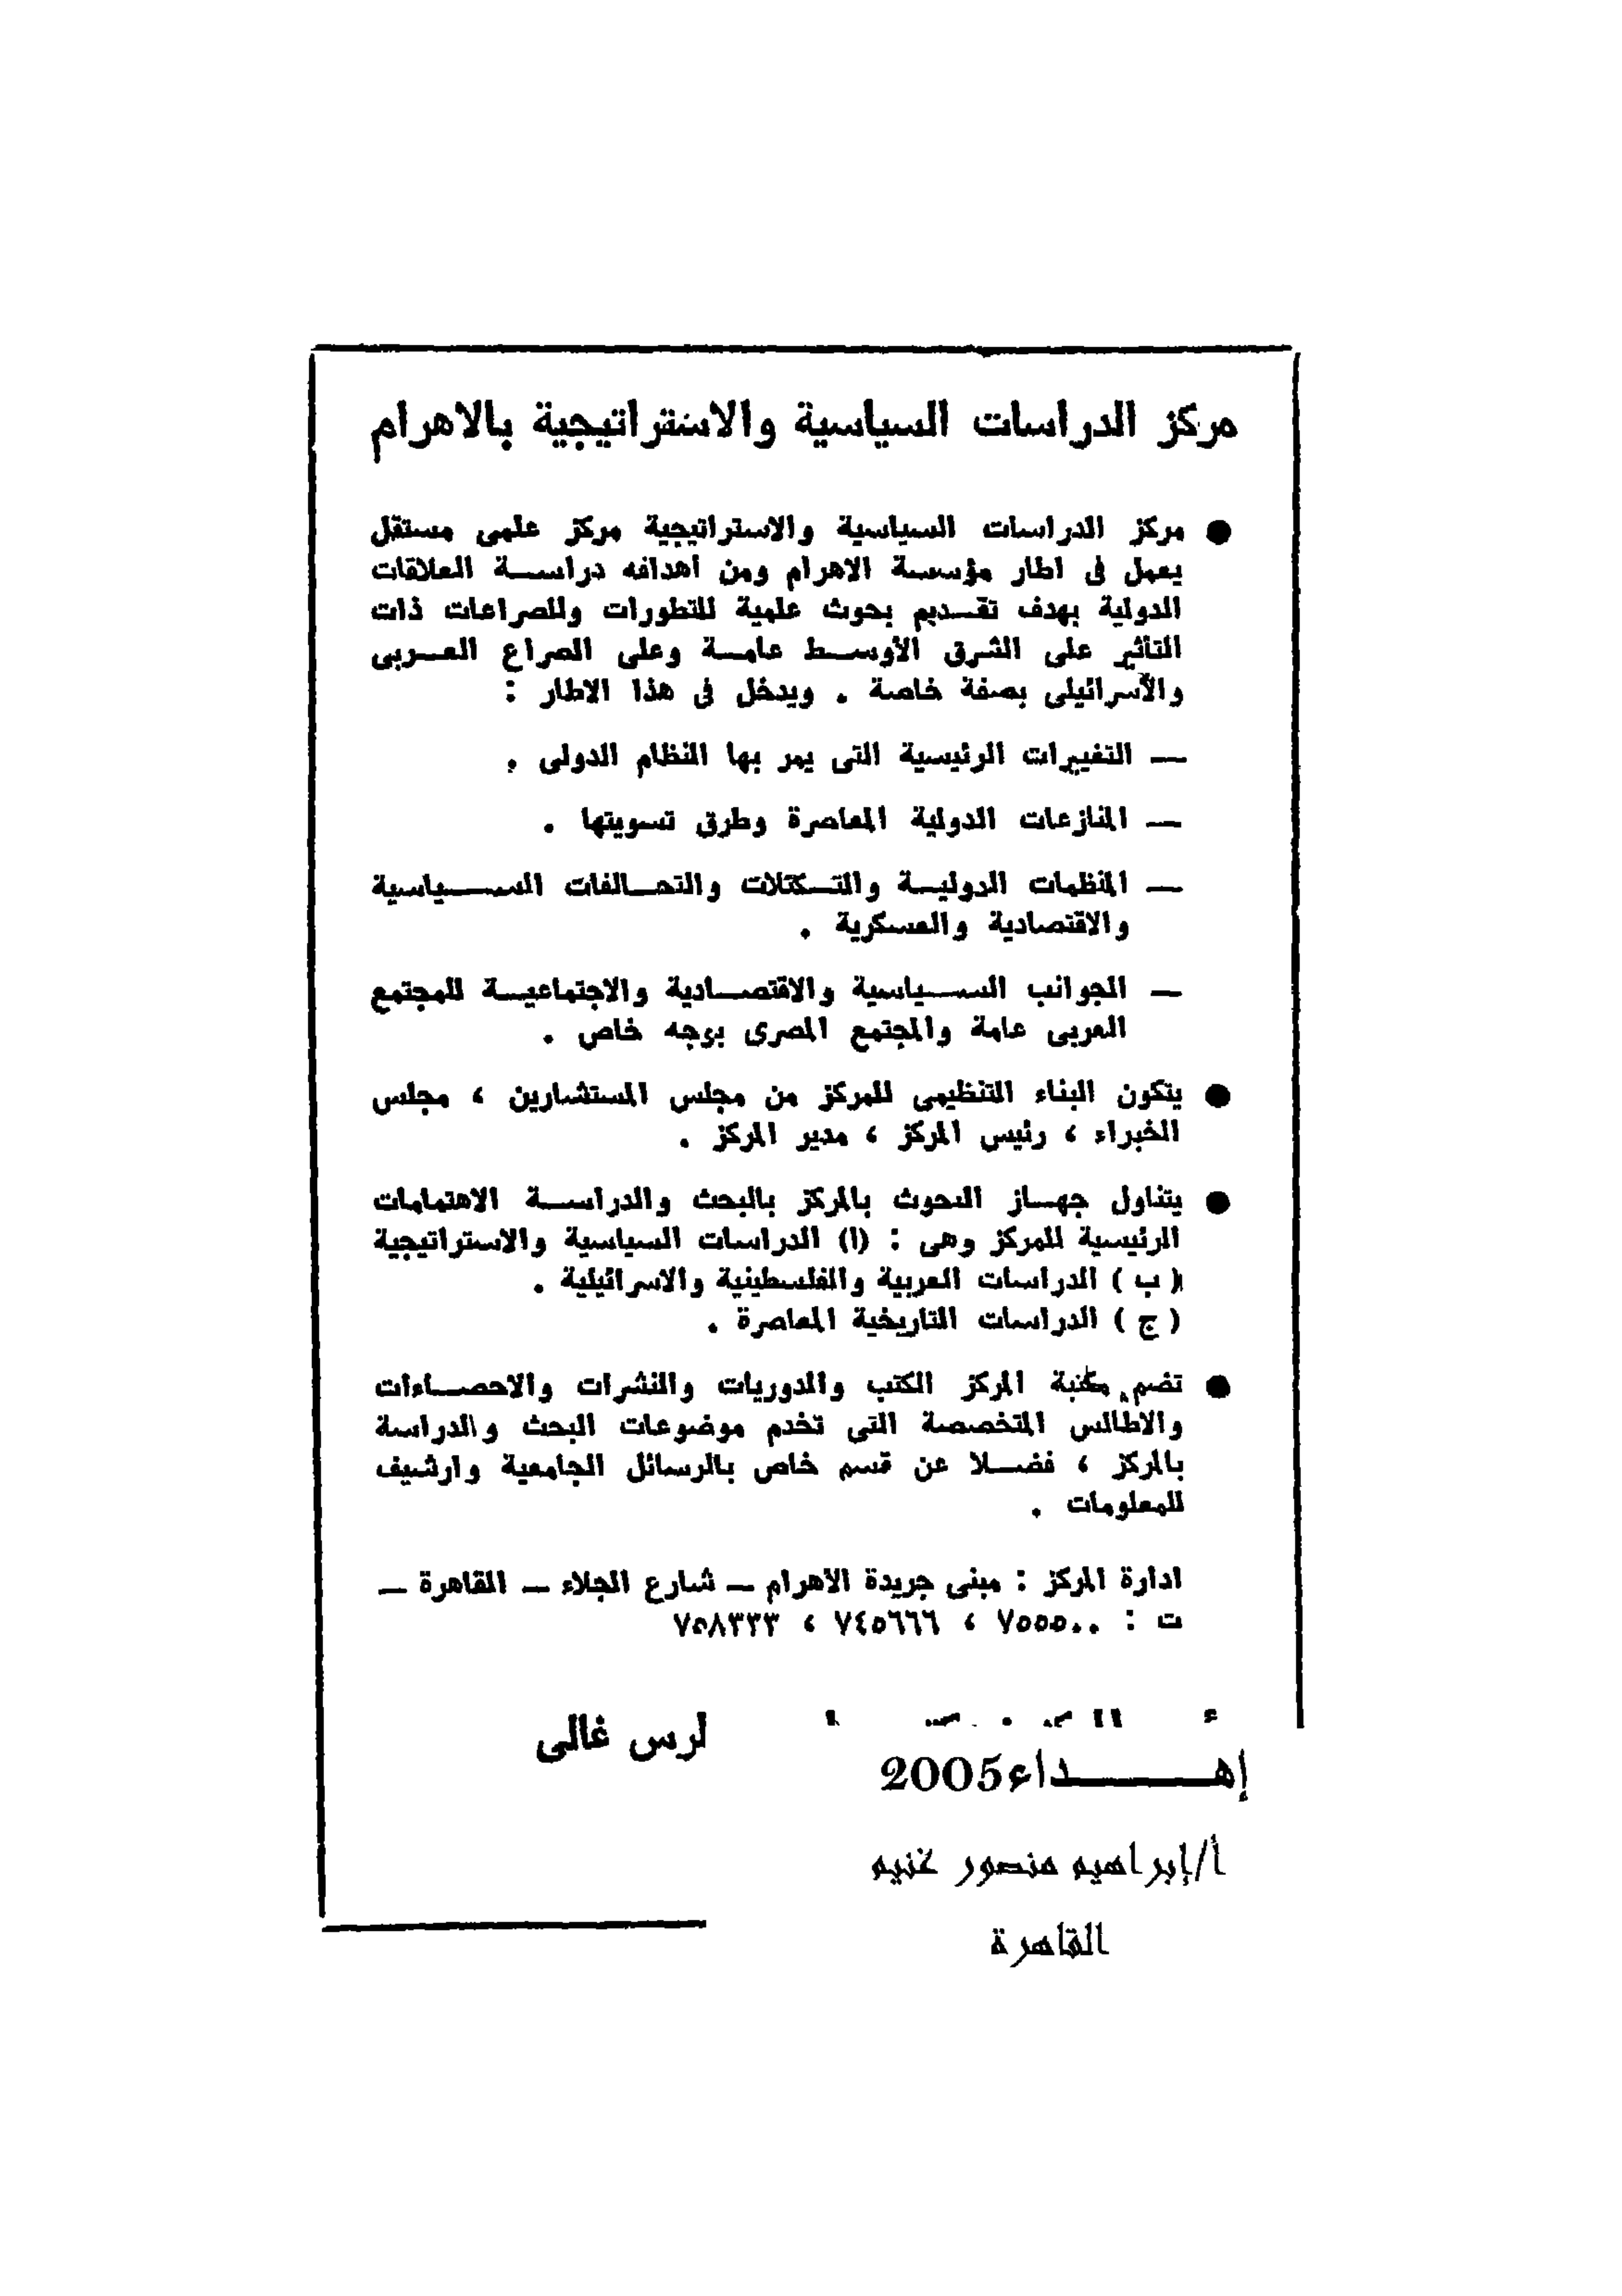 مركز الدراسات السياسية والاستراتيجية بالاهرام
● مركز الدراسات السياسية والاستراتيجية مركز علمى مستقل
يعمل فى اطار مؤسسة الاهرام ومن أهدافه دراسة العلاقات
الدولية بهدف تقديم بحوث علمية للتطورات وللصراعات ذات
التأثير على الشرق الأوسط عامة وعلى الصراع العربى
والاسرائيلى بصفة خاصة . ويدخل فى هذا الاطار :
— التغييرات الرئيسية التى يمر بها النظام الدولى .
— المنازعات الدولية المعاصرة وطرق تسويتها .
— المنظمات الدولية والتكتلات والتحالفات السياسية
والاقتصادية والعسكرية .
— الجوانب السياسية والاقتصادية والاجتماعية للمجتمع
العربى عامة والمجتمع المصرى بوجه خاص .
● يتكون البناء التنظيمى للمركز من مجلس المستشارين ، مجلس
الخبراء ، رئيس المركز ، مدير المركز .
● يتناول جهاز البحوث بالمركز بالبحث والدراسة الاهتمامات
الرئيسية للمركز وهى : (ا) الدراسات السياسية والاستراتيجية
( ب ) الدراسات العربية والفلسطينية والاسرائيلية .
( ج ) الدراسات التاريخية المعاصرة .
● تضم مكتبة المركز الكتب والدوريات والنشرات والاحصاءات
والاطالس المتخصصة التى تخدم موضوعات البحث والدراسة
بالمركز ، فضلا عن قسم خاص بالرسائل الجامعية وارشيف
للمعلومات .
ادارة المركز : مبنى جريدة الاهرام — شارع الجلاء — القاهرة —
ت : ٧٥٥٥٠٠ ، ٧٤٥٦٦٦ ، ٧٥٨٣٣٣
لرس غالى
إهداء 2005
أ/إبراهيم منصور غنيم
القاهرة